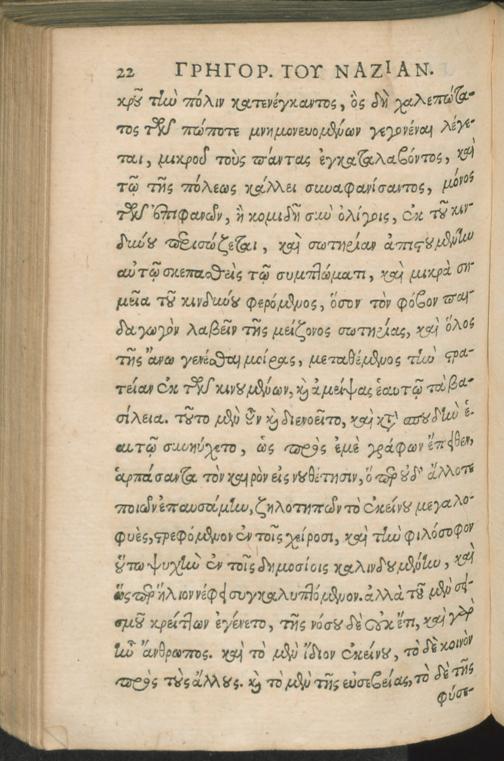 22 ΓΡΗΓΟΡ. ΤΟΥ ΝΑΖΙΑΝ.
κροῦ τὴν πόλιν κατενέγκαντος, ὃς δὴ χαλεπώτα-
τος τῶν πώποτε μνημονευομένων γεγονέναι λέγε-
ται, μικροῦ τοὺς πάντας ἐγκαταλαβόντος, καὶ
τῷ τῆς πόλεως κάλλει συναφανίσαντος, μόνος
τῶν ἐπιφανῶν, ἢ κομιδῆ σὺν ὀλίγοις, ἐκ τοῦ κιν-
δύνου περισώζεται, καὶ σωτηρίαν ἀπιστουμένην
αὐτῷ σκεπασθεὶς τῷ συμπτώματι, καὶ μικρὰ ση-
μεῖα τοῦ κινδύνου φερόμενος, ὅσον τὸν φόβον παι-
δαγωγὸν λαβεῖν τῆς μείζονος σωτηρίας, καὶ ὅλος
τῆς ἄνω γενέσθαι μοίρας, μεταθέμενος τὴν στρα-
τείαν ἐκ τῶν κινουμένων, καὶ ἀμείψας ἑαυτῷ τὰ βα-
σίλεια. τοῦτο μὲν οὖν καὶ διενοεῖτο, καὶ κατὰ σπουδὴν ἑ-
αυτῷ συνηύχετο, ὡς πρὸς ἐμὲ γράφων ἔπειθεν,
ἁρπάσαντα τὸν καιρὸν εἰς νουθέτησιν, ὅπερ οὐδ' ἄλλοτε
ποιῶν ἐπαυσάμην, ζηλοτυπῶν τὸ ἐκείνου μεγαλο-
φυὲς, στρεφόμενον ἐν τοῖς χείροσι, καὶ τὴν φιλόσοφον
οὕτω ψυχὴν ἐν τοῖς δημοσίοις καλινδουμένην, καὶ
ὥσπερ ἥλιον νέφει συγκαλυπτόμενον. ἀλλὰ τοῦ μὲν σει-
σμοῦ κρείττων ἐγένετο, τῆς νόσου δὲ οὐκ ἔτι, καὶ γὰρ
ἦν ἄνθρωπος. καὶ τὸ μὲν ἴδιον ἐκείνου, τὸ δὲ κοινὸν
πρὸς τοὺς ἄλλους. καὶ τὸ μὲν τῆς εὐσεβείας, τὸ δὲ τῆς
φύσε-